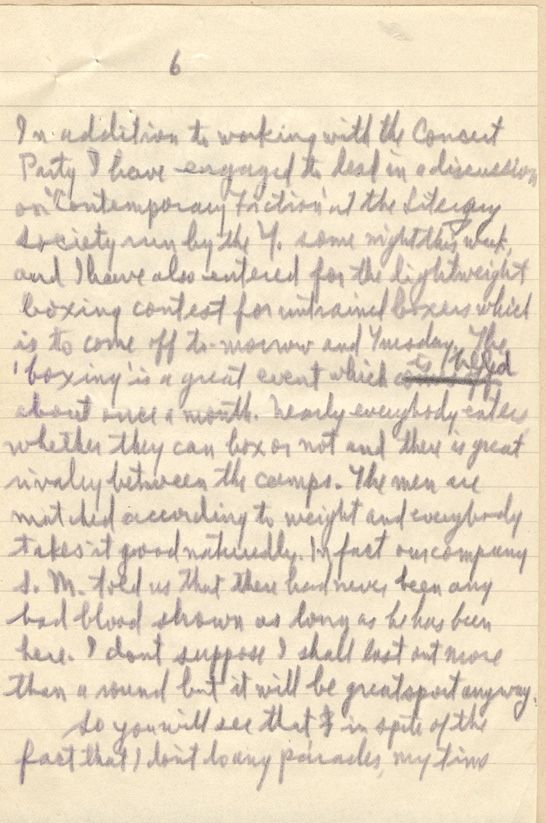 6
In addition to working with the Concert
Party I have engaged to lead in a discussion
on 'Contemporary Fiction' at the Literary
Society run by the Y. some night this week,
and I have also entered for the lightweight
boxing contest for untrained boxers which
is to come off to-morrow and Tuesday. The
'boxing' is a great event which is held
about once a month. Nearly everybody enters
whether they can box or not and there is great
rivalry between the camps. The men are
matched according to weight and everybody
takes it good naturedly. In fact our company
S. M. told us that there had never been any
bad blood shown as long as he has been
here. I dont suppose I shall last out more
than a round but it will be great sport anyway.
So you will see that in spite of the
fact that I don't do any parades, my time